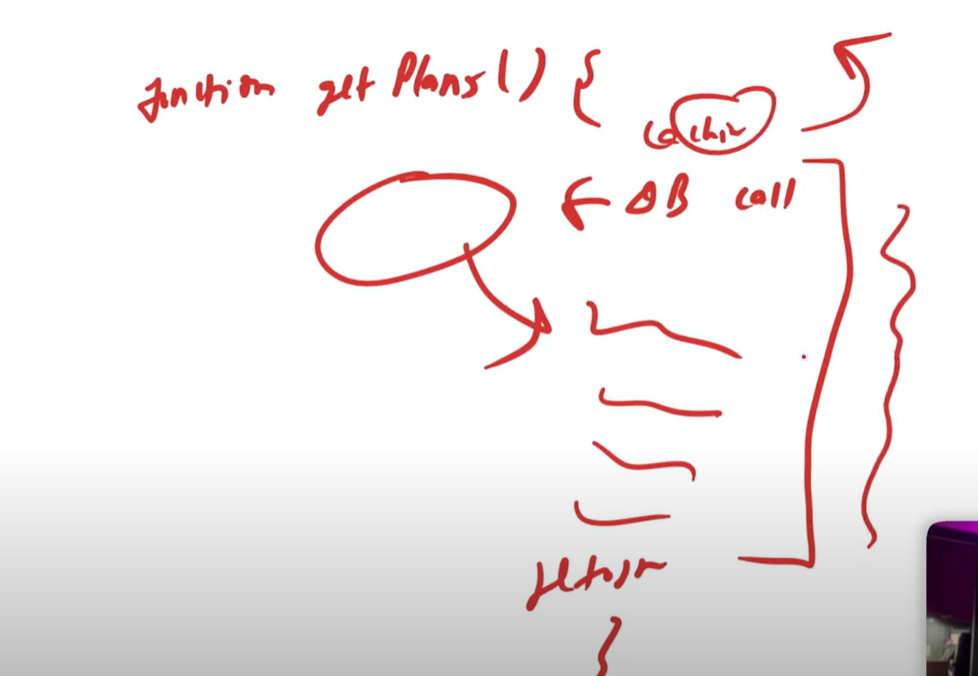 function getPlans() {
cachin
← DB call
return
}